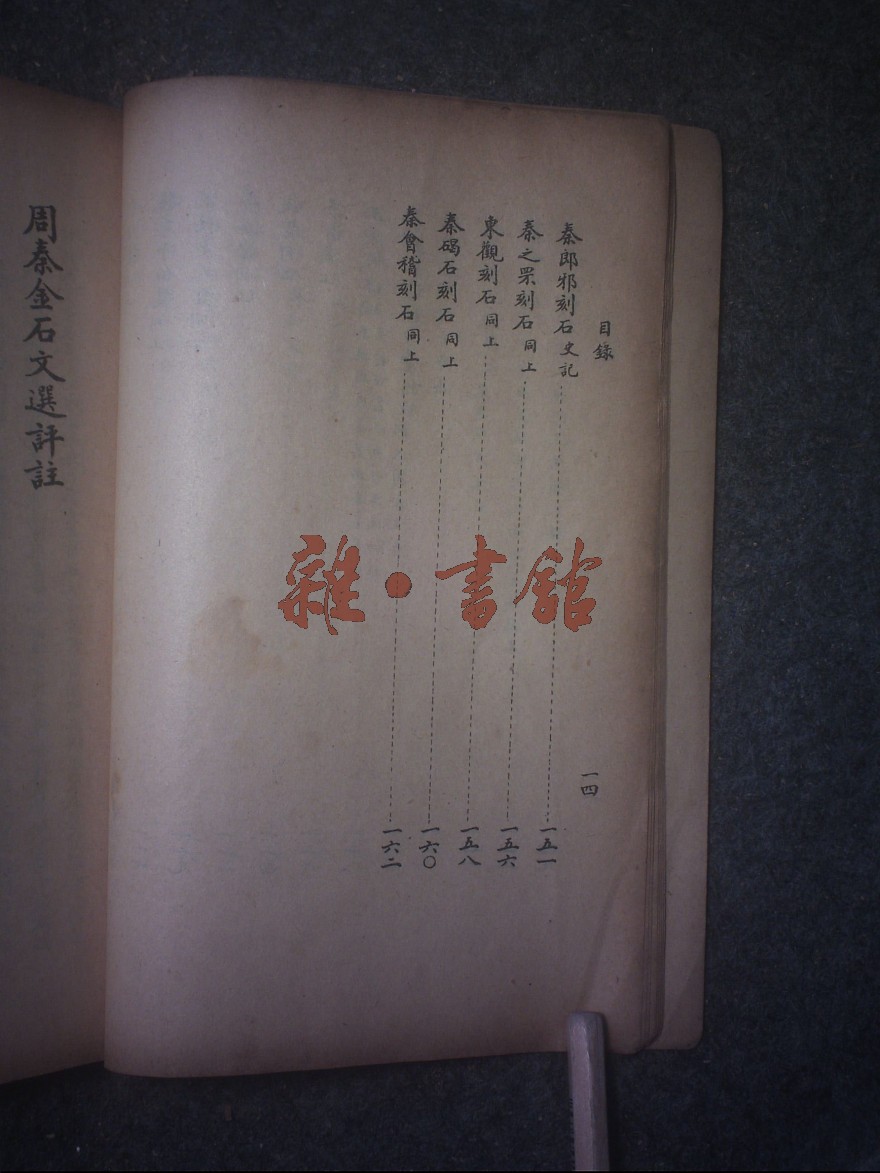 目錄
一四
秦郎邪刻石 史記 一五一
秦之罘刻石 同上 一五六
東觀刻石 同上 一五八
秦碣石刻石 同上 一六〇
秦會稽刻石 同上 一六二
周秦金石文選評註
雜·書館